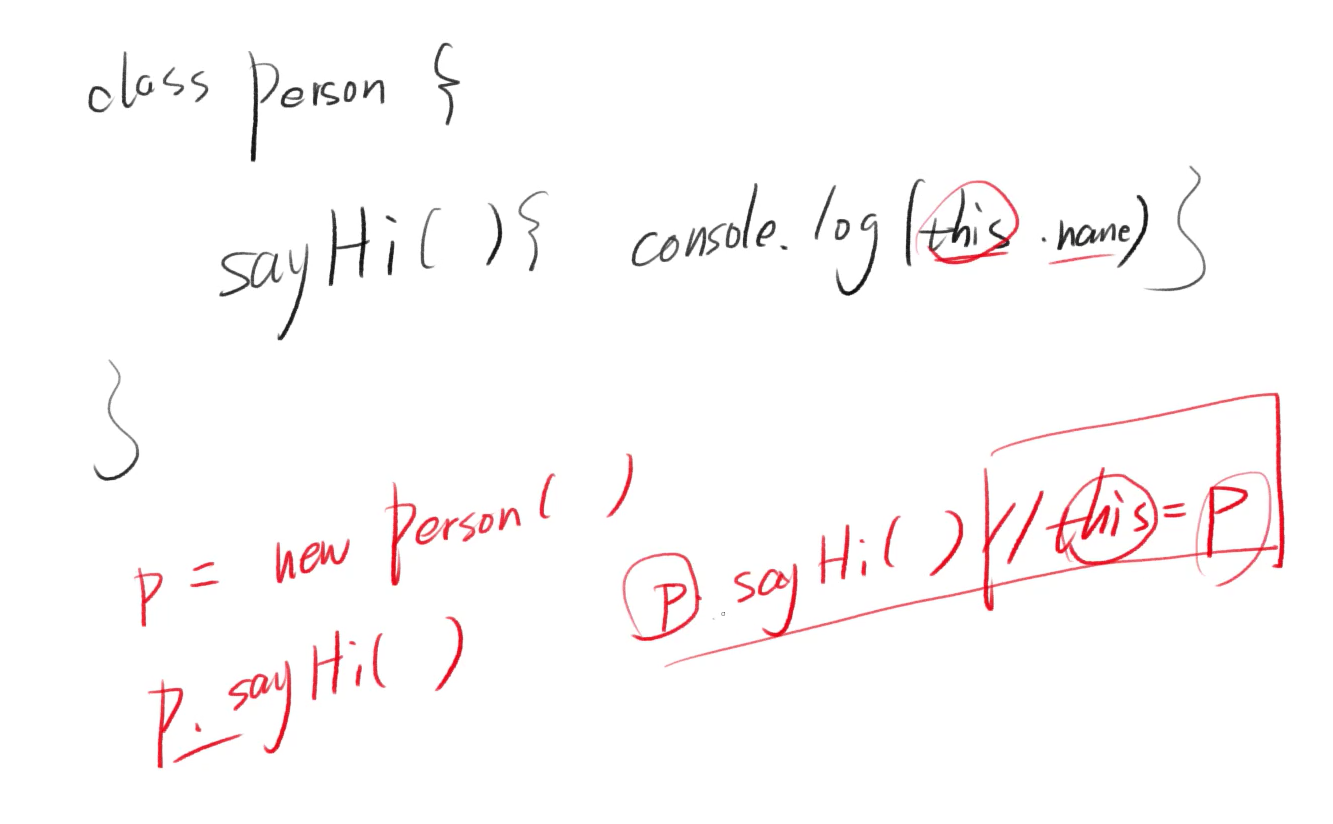 class person {
sayHi( ) { console.log(this.name) }
}
p = new person( )
p.sayHi( )
p.sayHi( ) // this = p